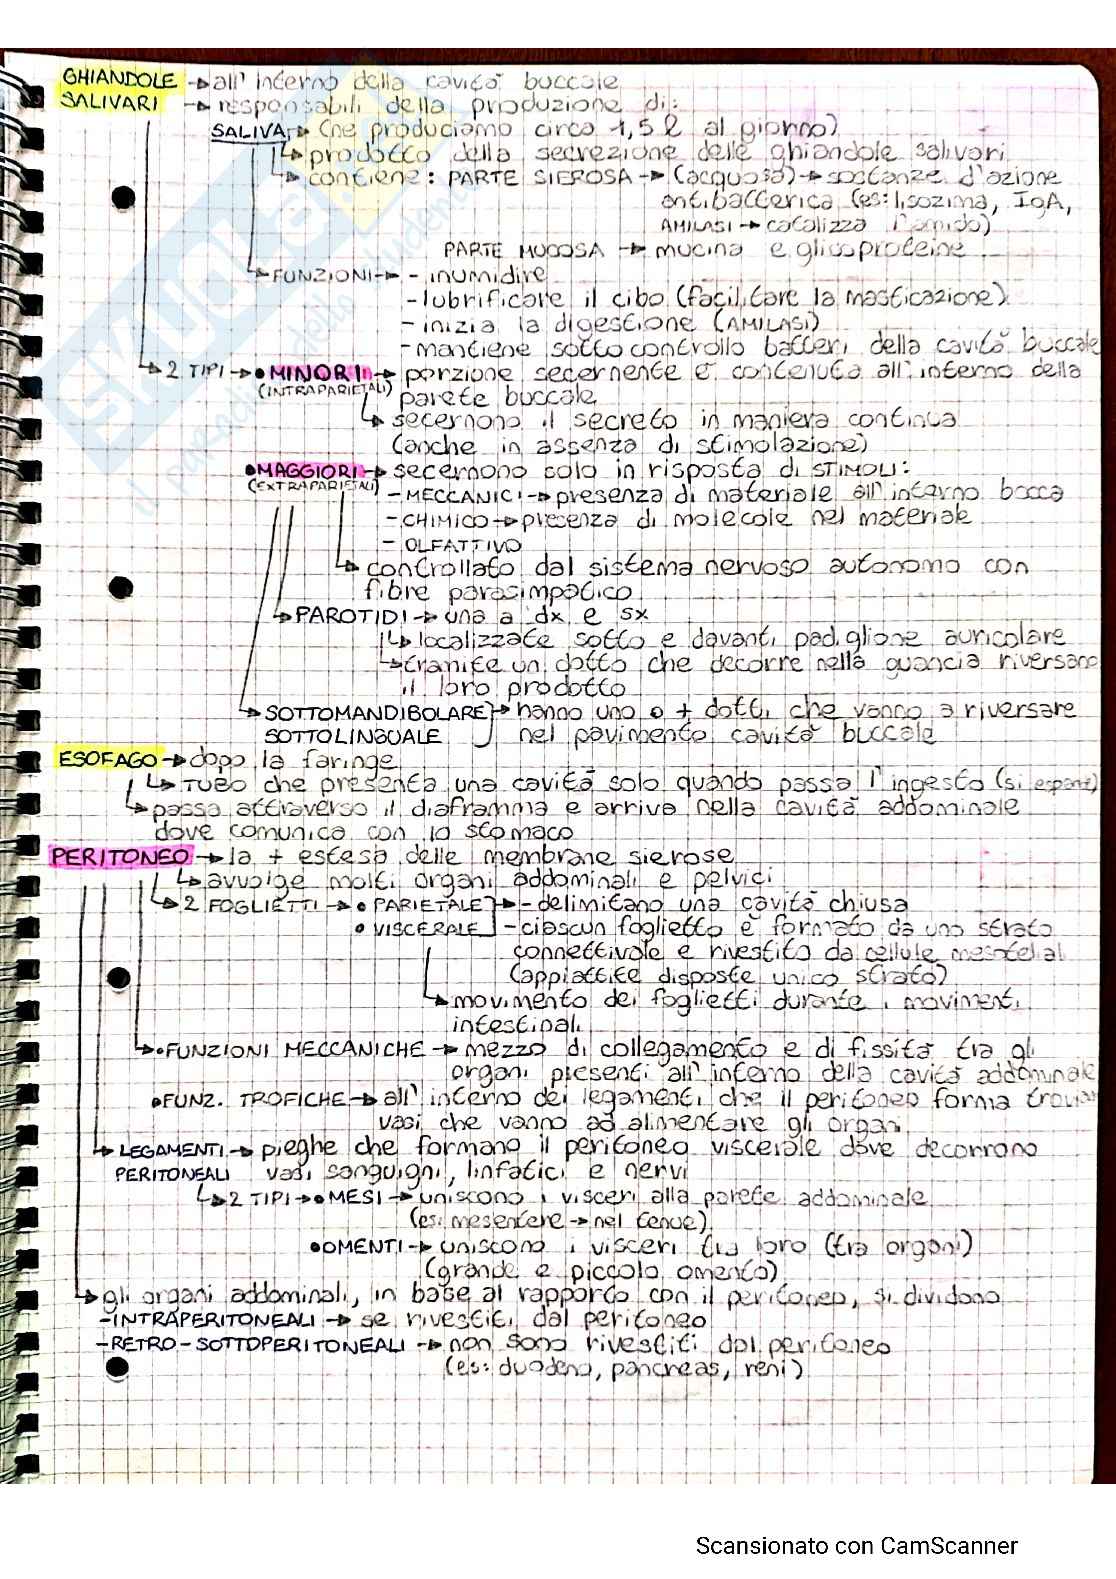 GHIANDOLE → all'interno della cavità buccale
SALIVARI → responsabili della produzione di:
SALIVA → (ne produciamo circa 1,5 l al giorno)
↳ prodotto della secrezione delle ghiandole salivari
↳ contiene: PARTE SIEROSA → (acquosa) → sostanze d'azione
antibatterica (es: lisozima, IgA,
AMILASI → catalizza l'amido)
PARTE MUCOSA → mucina e glicoproteine
↳ FUNZIONI → - inumidire
- lubrificare il cibo (facilitare la masticazione)
- inizia la digestione (AMILASI)
- mantiene sotto controllo batteri della cavità buccale
↳ 2 TIPI → • MINORI → porzione secernente è contenuta all'interno della
(INTRAPARIETALI) parete buccale
↳ secernono il secreto in maniera continua
(anche in assenza di stimolazione)
• MAGGIORI → secernono solo in risposta di STIMOLI:
(EXTRAPARIETALI) - MECCANICI → presenza di materiale all'interno bocca
- CHIMICO → presenza di molecole nel materiale
- OLFATTIVO
↳ controllato dal sistema nervoso autonomo con
fibre parasimpatico
↳ PAROTIDI → una a dx e sx
↳ localizzate sotto e davanti padiglione auricolare
↳ tramite un dotto che decorre nella guancia riversano
il loro prodotto
↳ SOTTOMANDIBOLARE → hanno uno o + dotti che vanno a riversare
SOTTOLINGUALE nel pavimento cavità buccale
ESOFAGO → dopo la faringe
↳ TUBO che presenta una cavità solo quando passa l'ingesto (si espande)
↳ passa attraverso il diaframma e arriva nella cavità addominale
dove comunica con lo stomaco
PERITONEO → la + estesa delle membrane sierose
↳ avvolge molti organi addominali e pelvici
↳ 2 FOGLIETTI → • PARIETALE → - delimitano una cavità chiusa
• VISCERALE - ciascun foglietto è formato da uno strato
connettivale e rivestito da cellule mesoteliali
(appiattite disposte unico strato)
↳ movimento dei foglietti durante i movimenti
intestinali
→ • FUNZIONI MECCANICHE → mezzo di collegamento e di fissità tra gli
organi presenti all'interno della cavità addominale
• FUNZ. TROFICHE → all'interno dei legamenti che il peritoneo forma trovian
vasi che vanno ad alimentare gli organi
→ LEGAMENTI → pieghe che formano il peritoneo viscerale dove decorrono
PERITONEALI vasi sanguigni, linfatici e nervi
↳ 2 TIPI → • MESI → uniscono i visceri alla parete addominale
(es: mesentere → nel tenue)
• OMENTI → uniscono i visceri tra loro (tra organi)
(grande e piccolo omento)
→ gli organi addominali, in base al rapporto con il peritoneo, si dividono
- INTRAPERITONEALI → se rivestiti dal peritoneo
- RETRO-SOTTOPERITONEALI → non sono rivestiti dal peritoneo
(es: duodeno, pancreas, reni)
Scansionato con CamScanner